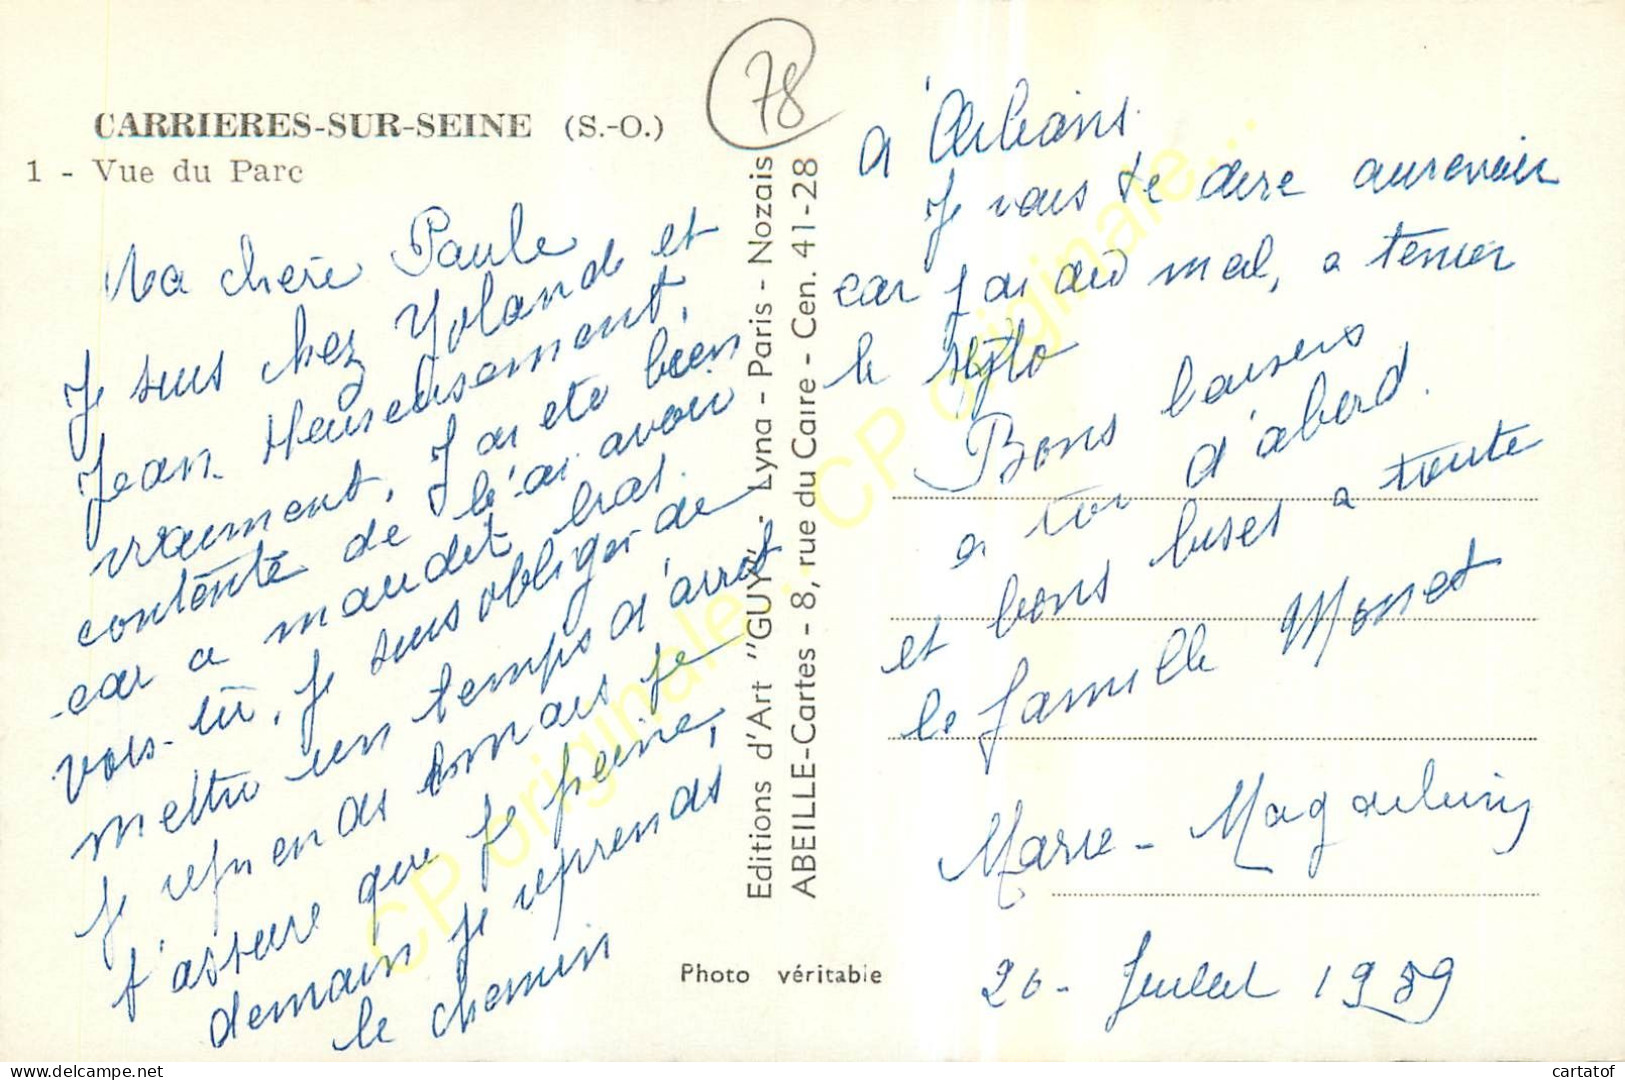 CARRIERES-SUR-SEINE (S.-O.)
1 - Vue du Parc
78
Ma chere Paule
Je suis chez Yolande et
Jean Heureusement,
vraiment, J'ai ete bien
contente de l'avoir
car ce maudit bras
vois-tu, Je suis obliger de
mettre un temps d'arret
Je reprends mais je
t'assure que Je peine,
demain Je reprends
le chemin
Editions d'Art "GUY" - Lyna - Paris - Nozais
ABEILLE-Cartes - 8, rue du Caire - Cen. 41-28
Photo véritable
a Orléans.
Je vais te dire aurevoir
car J'ai du mal, a tenir
le stylo
Bons baisers
a toi d'abord.
et bons bises a toute
la famille Monet
Marie-Magdeleine
20 - Juillet 1959
CP originale...
CP originale...
cartatof